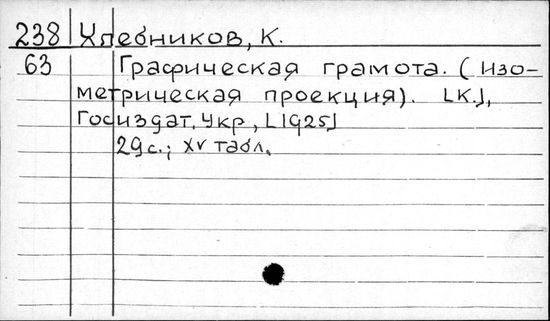 238 Хлебников, К.
63 Графическая грамота. (Изо-
метрическая проекция). [К.],
Госиздат. Укр, [1925]
29с.; XV табл.